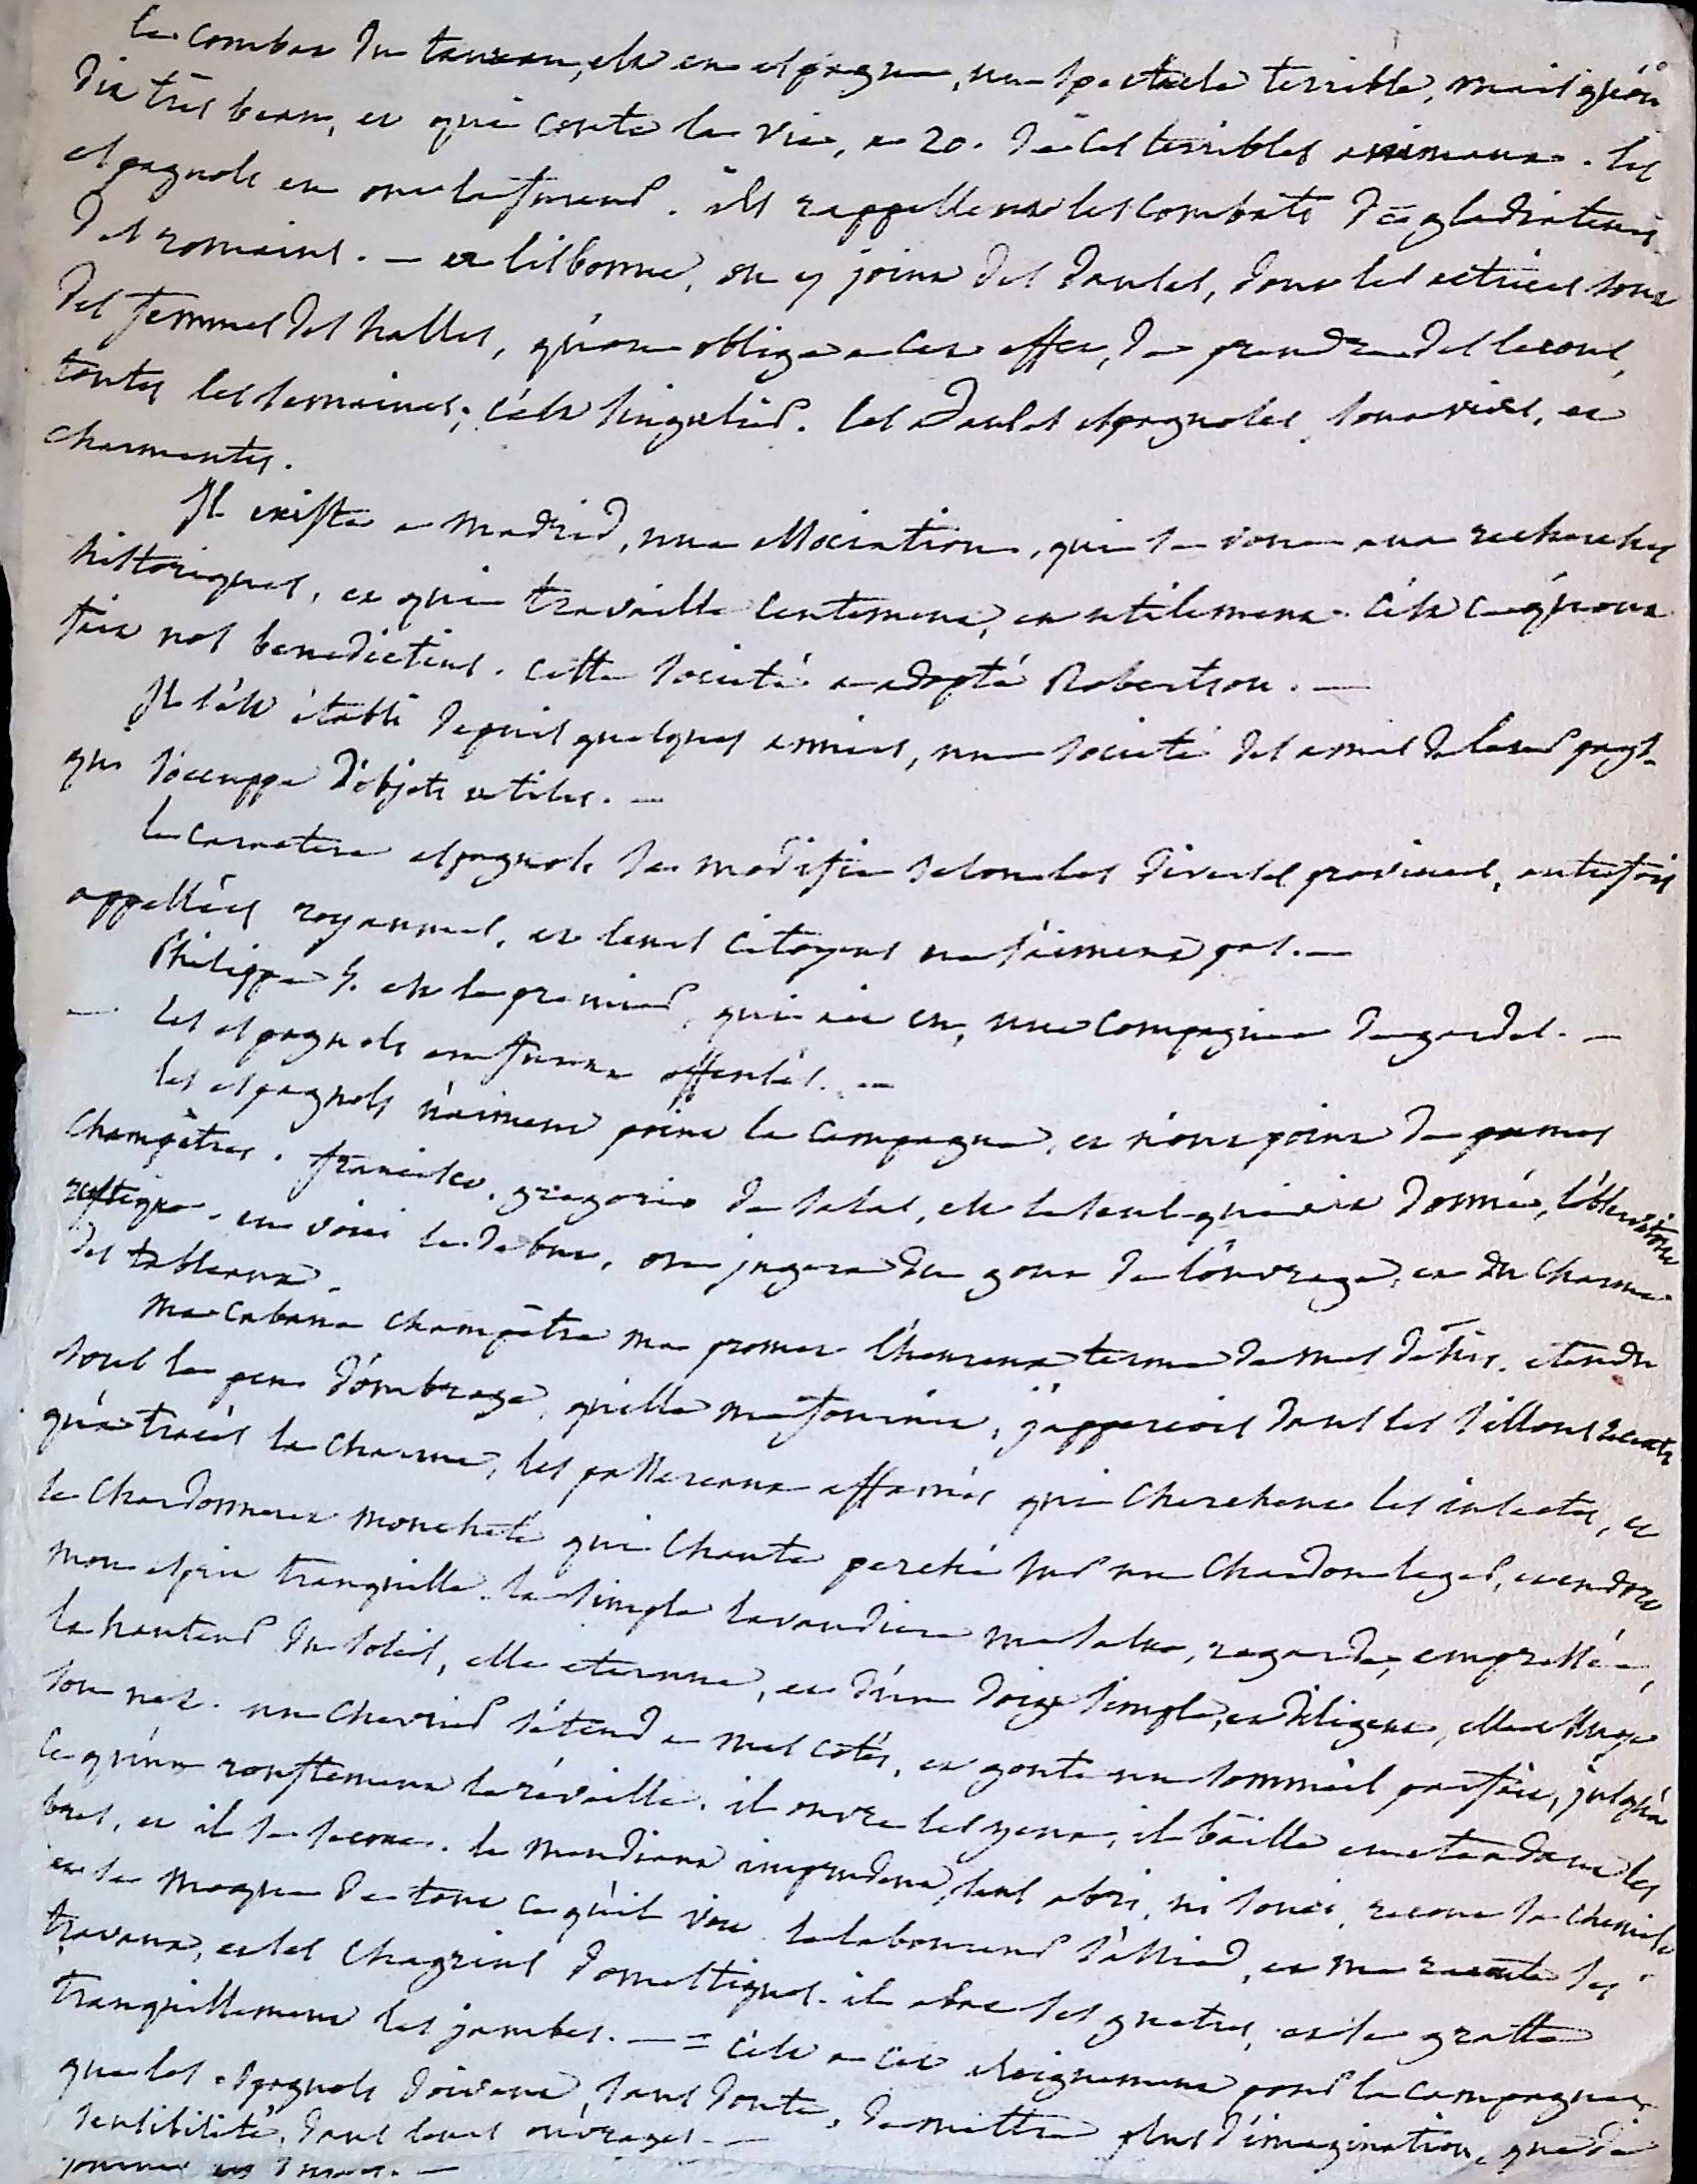 le combat du taureau, est en espagne, un spectacle terrible, mais qu'on
dit très beau, et qui coute la vie, a 20. de ces terribles animaux. les
espagnols en ont la fureur. ils rappellent les combats de gladiateurs
des romains. — a lisbonne, on y joint des danses, dont les actrices sont
des femmes des halles, qu'on oblige a cet effet, de prendre des lecons,
toutes les semaines; c'est singulier. les danses espagnoles, sont vives, et
charmantes.
Il existe a madrid, une association, qui se voue aux recherches
historiques, et qui travaille lentement, et utilement. c'est ce qu'ont
fait nos benedictins. cette societé a adopté Robertson. —
Il s'est établi depuis quelques années, une societé des amis de leur pays.
qui s'occuppe d'objets utiles. —
le caractere espagnol se modifie selon les diverses provinces, autrefois
appellées royaumes, et leurs citoyens ne s'aiment pas. —
Philippe 5. est le premier, qui ait eu, une compagnie de gardes. —
— les espagnols en furent offensés. —
les espagnols n'aiment point la campagne, et n'ont point de poemes
champêtres. francisco. gregorio de salas, est le seul qui ait donné, l'observatoire
rustique. en voici le debut, on jugera du gout de l'ouvrage, et du charme
des tableaux.
Ma cabane champêtre me promet l'heureux terme de mes désirs. etendu
sous le peu d'ombrage, qu'elle me fournit, j'appercois dans les sillons récents
qu'a tracés la charrue, les passereaux affamés qui cherchent les insectes, et
le chardonneret moucheté qui chante perché sur un chardon leger, et endort
mon esprit tranquille. la simple lavandiere me salue, regarde, empressée,
la hauteur du soleil, elle eternue, et d'un doigt simple, et diligent, elle essuye
son nez. un chevrier s'étend a mes cotés, et goute un sommeil parfait, jusqu'à
ce qu'un ronflement le réveille. il ouvre les yeux, il bâille en etendant les
bras, et il se secoue. le mendiant imprudent, sans abri, ni souci, recout sa chemise
et se moque de tout ce qu'il voit. le laboureur s'assied, et me raconte ses
travaux, et les chagrins domestiques. il abat ses guetres, et se gratte
tranquillement les jambes. — = c'est a cet eloignement pour la campagne,
que les espagnols doivent, sans doute, de mettre plus d'imagination, que de
sensibilité, dans leurs ouvrages. —